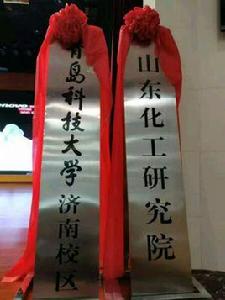 青岛科技大学济南校区
山东化工研究院